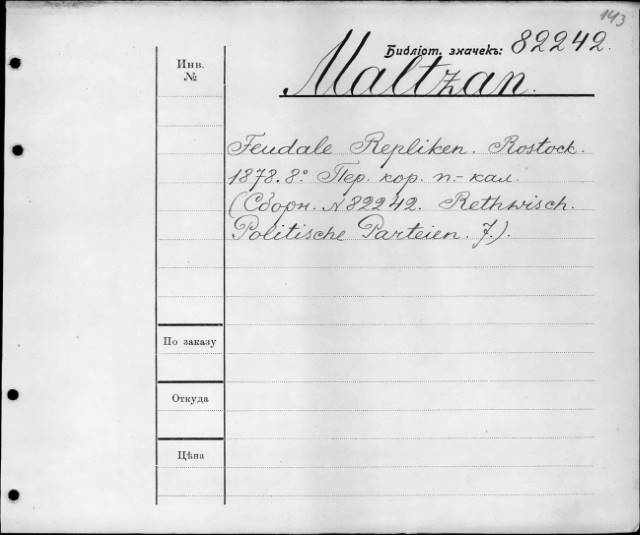 143
Библіот. значекъ: 82242.
Инв.
№
Maltzan.
Feudale Repliken. Rostock.
1878. 8° Пер. кор. п.-кал.
(Сборн. № 82242. Rethwisch.
Politische Parteien. 7.).
По заказу
Откуда
Цѣна